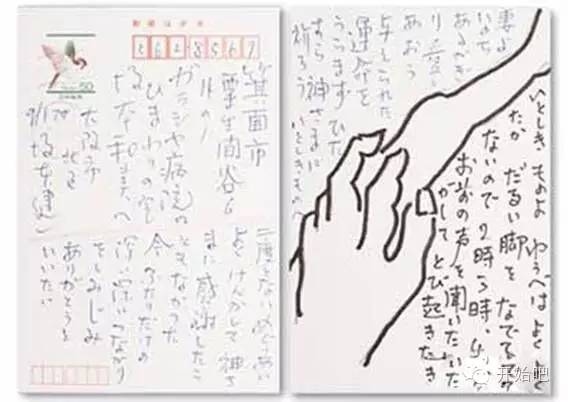 郵便はがき
50
562 8567
箕面市
粟生間谷6
ガラシヤ病院の
ひまわりの室
坂本和美へ
大阪市
北区
坂本健一
二度とないめぐりあい
よく けんかして 神さ
まに 感謝したこ
ともなかった
今 ふたりだけの
深い深いつながり
をしみじみ
ありがとうと
いいたい
妻よ
いのち
あるかぎ
り 愛し
あおう
与えられた
運命を
ひた
すら 神さまに
祈ろう
いとしきものへ
いとしき ものよ ゆうべは よく
たか だるい 脚を なでる
ないので 時 3時、4
お前の声を聞いた
がして とび起きた
开始吧